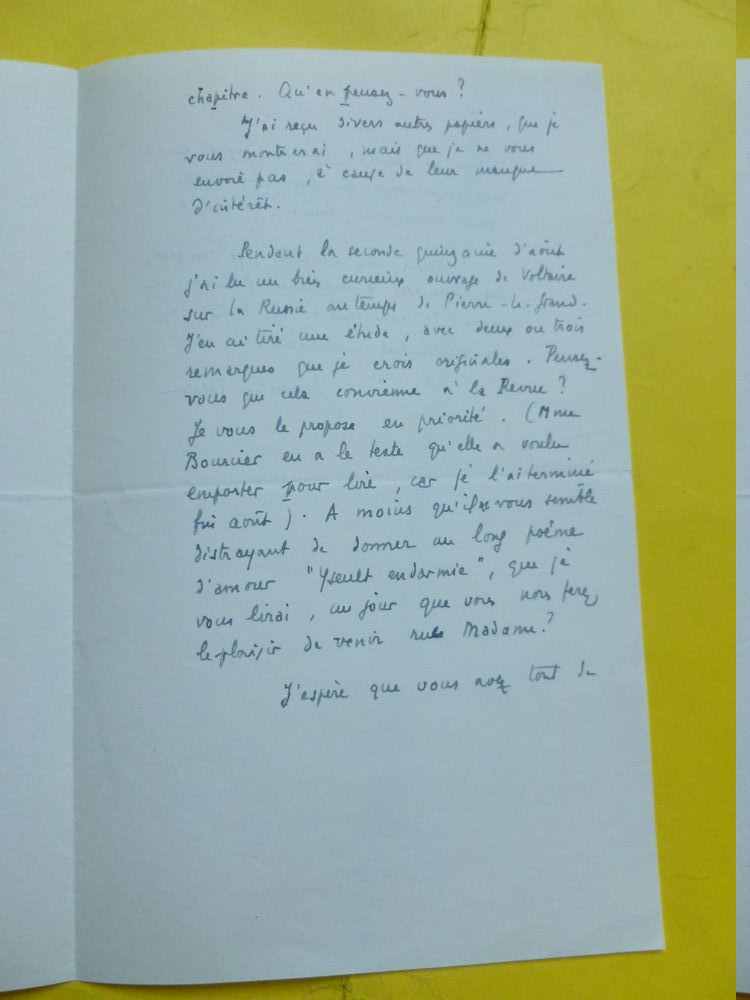 chapitre. Qu'en pensez-vous ?
J'ai reçu divers autres papiers, que je
vous montrerai, mais que je ne vous
envoie pas, à cause de leur manque
d'intérêt.
Pendant la seconde quinzaine d'août
j'ai lu un très curieux ouvrage de Voltaire
sur la Russie au temps de Pierre-le-Grand.
J'en ai tiré une étude, avec deux ou trois
remarques que je crois originales. Pensez-
vous que cela convienne à la Revue ?
Je vous le propose en priorité. (Mme
Bourcier en a le texte qu'elle a voulu
emporter pour lire, car je l'ai terminé
fin août). A moins qu'il ne vous semble
distrayant de donner un long poème
d'amour "Yseult endormie", que je
vous lirai, un jour que vous nous ferez
le plaisir de venir rue Madame ?
J'espère que vous avez tout de